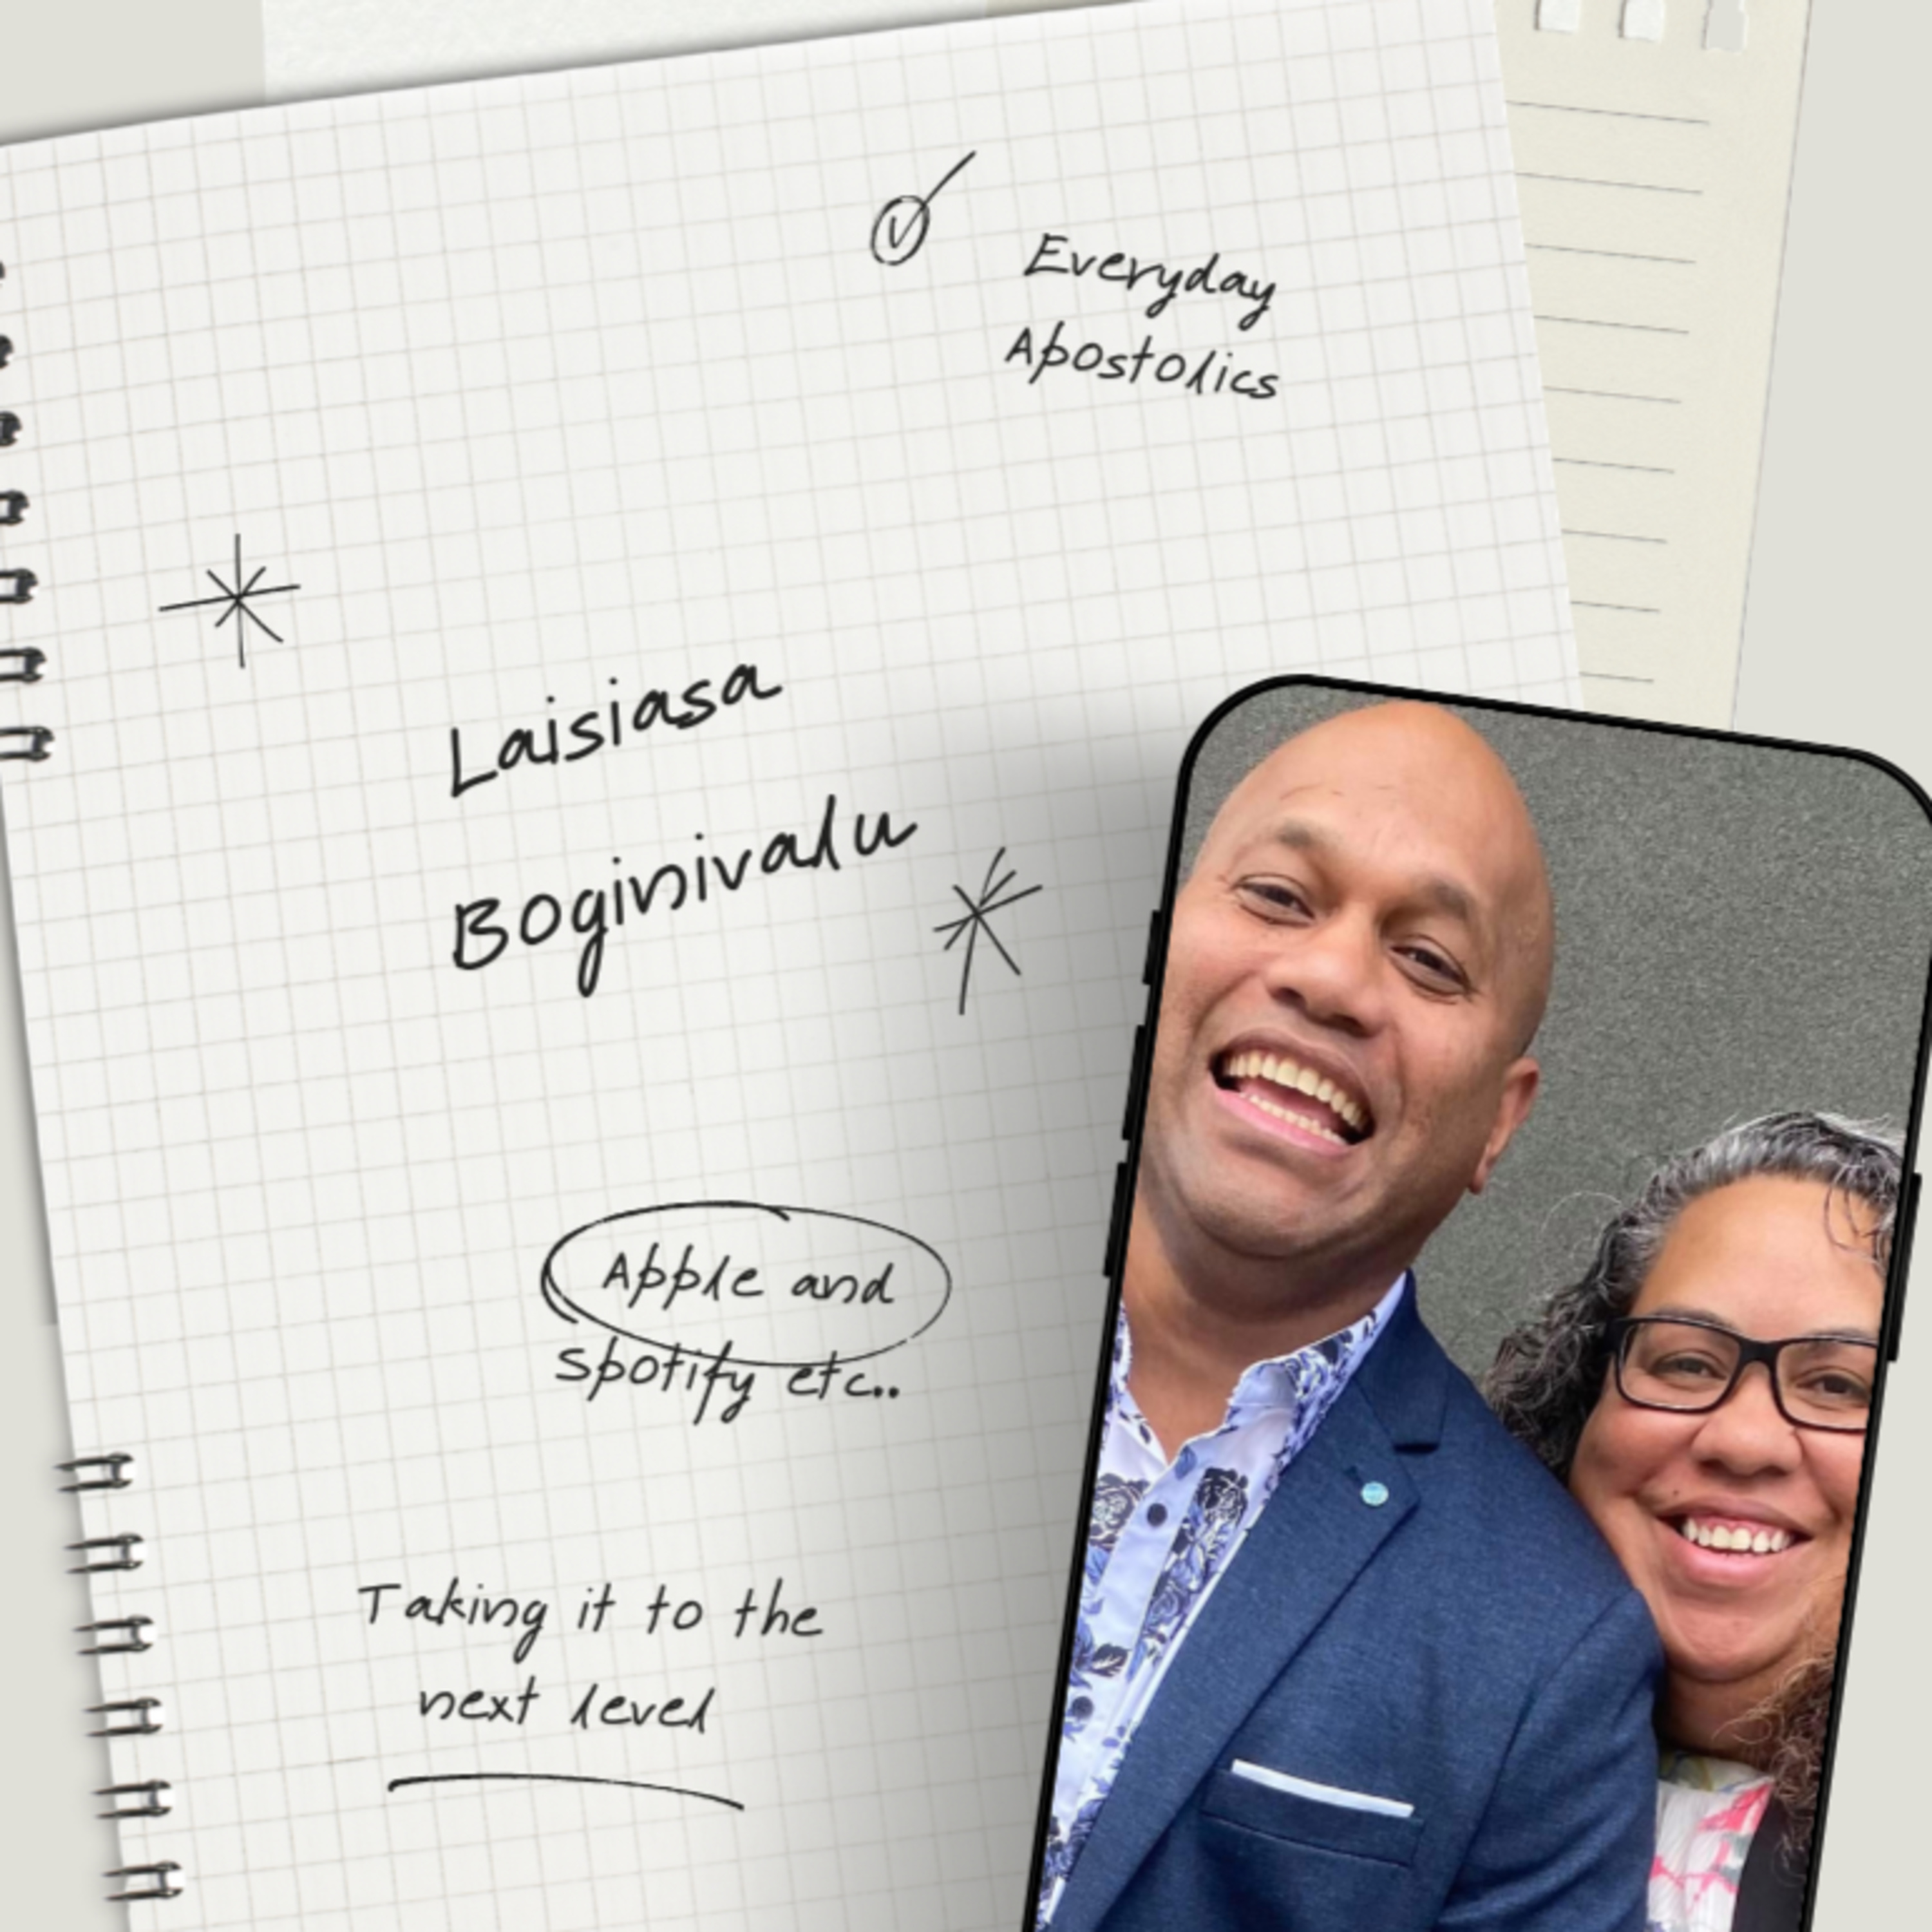 Everyday
Apostolics
Laisiasa
Boginivalu
Apple and
Spotify etc..
Taking it to the
next level